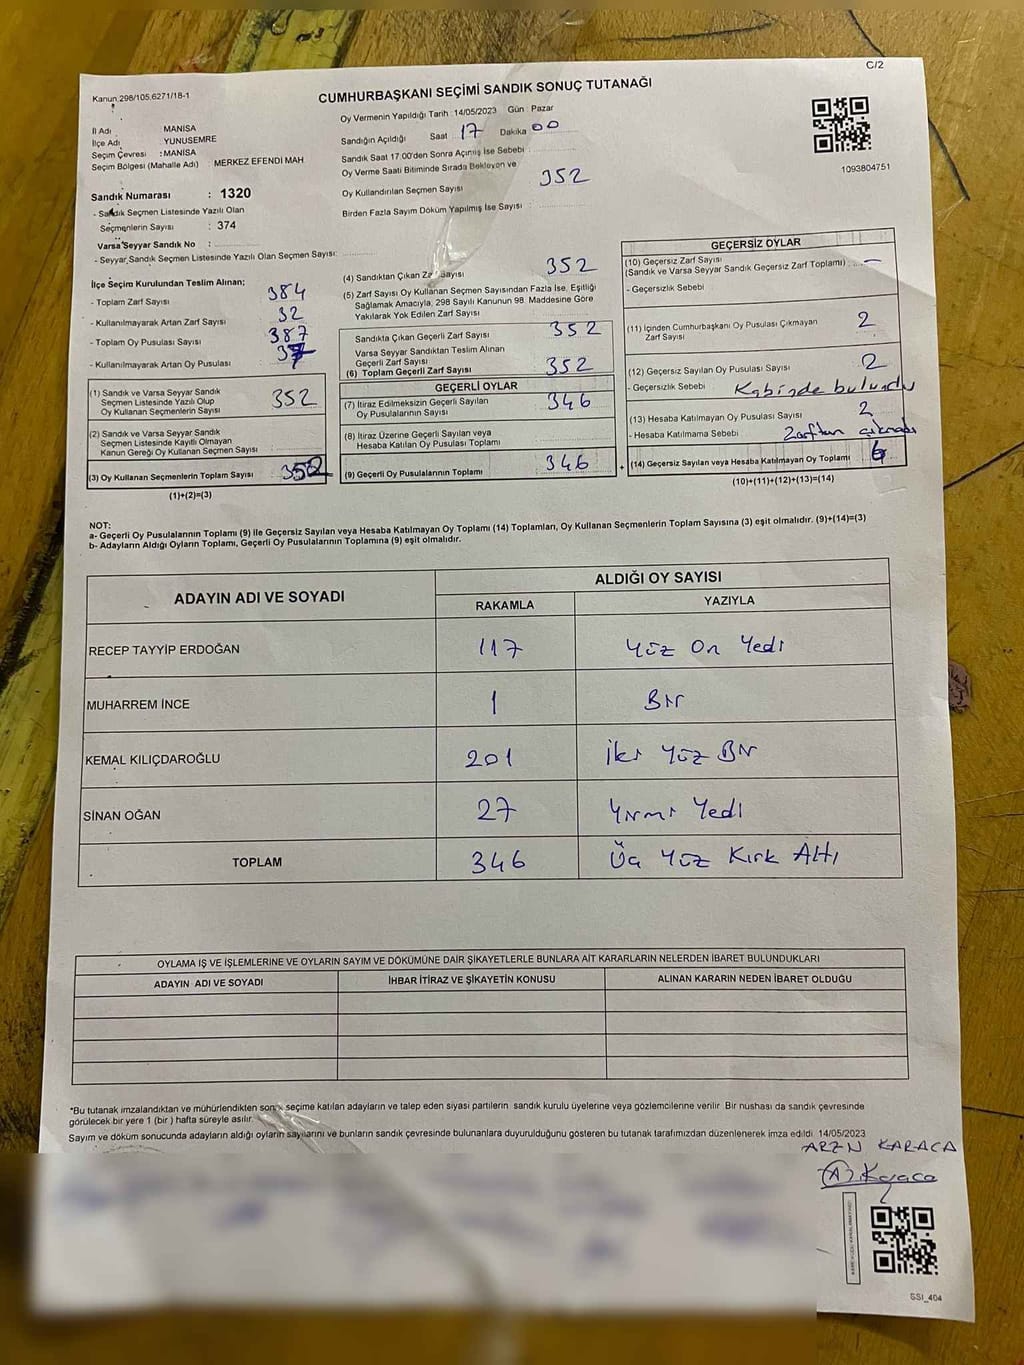 C/2
Kanun 298/105,6271/18-1
CUMHURBAŞKANI SEÇİMİ SANDIK SONUÇ TUTANAĞI
İl Adı MANİSA
İlçe Adı YUNUSEMRE
Seçim Çevresi : MANİSA
Seçim Bölgesi (Mahalle Adı) : MERKEZ EFENDİ MAH
Sandık Numarası : 1320
- Sandık Seçmen Listesinde Yazılı Olan
Seçmenlerin Sayısı : 374
Varsa Seyyar Sandık No :
- Seyyar Sandık Listesinde Yazılı Olan Seçmen Sayısı:
Oy Vermenin Yapıldığı Tarih : 14/05/2023 Gün : Pazar
Sandığın Açıldığı Saat 17 Dakika 00
Sandık Saat 17:00'den Sonra Açılmış İse Sebebi :
Oy Verme Saati Bitiminde Sırada Bekleyen ve
Oy Kullandırılan Seçmen Sayısı 352
Birden Fazla Sayım Döküm Yapılmış İse Sayısı :
1093804751
İlçe Seçim Kurulundan Teslim Alınan;
- Toplam Zarf Sayısı 384
- Kullanılmayarak Artan Zarf Sayısı 32
- Toplam Oy Pusulası Sayısı 387
- Kullanılmayarak Artan Oy Pusulası
(1) Sandık ve Varsa Seyyar Sandık
Seçmen Listesinde Yazılı Olup
Oy Kullanan Seçmenlerin Sayısı 352
(2) Sandık ve Varsa Seyyar Sandık
Seçmen Listesinde Kayıtlı Olmayan
Kanun Gereği Oy Kullanan Seçmen Sayısı
(3) Oy Kullanan Seçmenlerin Toplam Sayısı 352
(1)+(2)=(3)
(4) Sandıktan Çıkan Zarf Sayısı 352
(5) Zarf Sayısı Oy Kullanan Seçmen Sayısından Fazla İse, Eşitliği
Sağlamak Amacıyla, 298 Sayılı Kanunun 98. Maddesine Göre
Yakılarak Yok Edilen Zarf Sayısı
Sandıkta Çıkan Geçerli Zarf Sayısı 352
Varsa Seyyar Sandıktan Teslim Alınan
Geçerli Zarf Sayısı
(6) Toplam Geçerli Zarf Sayısı 352
GEÇERLİ OYLAR
(7) İtiraz Edilmeksizin Geçerli Sayılan
Oy Pusulalarının Sayısı 346
(8) İtiraz Üzerine Geçerli Sayılan veya
Hesaba Katılan Oy Pusulası Toplamı
(9) Geçerli Oy Pusulalarının Toplamı 346
GEÇERSİZ OYLAR
(10) Geçersiz Zarf Sayısı
(Sandık ve Varsa Seyyar Sandık Geçersiz Zarf Toplamı) : —
- Geçersizlik Sebebi
(11) İçinden Cumhurbaşkanı Oy Pusulası Çıkmayan
Zarf Sayısı 2
(12) Geçersiz Sayılan Oy Pusulası Sayısı 2
- Geçersizlik Sebebi Kabinde bulundu
(13) Hesaba Katılmayan Oy Pusulası Sayısı 2
- Hesaba Katılmama Sebebi Zarftan çıkmadı
+ (14) Geçersiz Sayılan veya Hesaba Katılmayan Oy Toplamı 6
(10)+(11)+(12)+(13)=(14)
NOT:
a- Geçerli Oy Pusulalarının Toplamı (9) ile Geçersiz Sayılan veya Hesaba Katılmayan Oy Toplamı (14) Toplamları, Oy Kullanan Seçmenlerin Toplam Sayısına (3) eşit olmalıdır. (9)+(14)=(3)
b- Adayların Aldığı Oyların Toplamı, Geçerli Oy Pusulalarının Toplamına (9) eşit olmalıdır.
ADAYIN ADI VE SOYADI ALDIĞI OY SAYISI
RAKAMLA YAZIYLA
RECEP TAYYİP ERDOĞAN 117 Yüz On Yedi
MUHARREM İNCE 1 Bir
KEMAL KILIÇDAROĞLU 201 İki Yüz Bir
SİNAN OĞAN 27 Yirmi Yedi
TOPLAM 346 Üç Yüz Kırk Altı
OYLAMA İŞ VE İŞLEMLERİNE VE OYLARIN SAYIM VE DÖKÜMÜNE DAİR ŞİKAYETLERLE BUNLARA AİT KARARLARIN NELERDEN İBARET BULUNDUKLARI
ADAYIN ADI VE SOYADI İHBAR İTİRAZ VE ŞİKAYETİN KONUSU ALINAN KARARIN NEDEN İBARET OLDUĞU
*Bu tutanak imzalandıktan ve mühürlendikten sonra seçime katılan adayların ve talep eden siyasi partilerin sandık kurulu üyelerine veya gözlemcilerine verilir Bir nushası da sandık çevresinde
görülecek bir yere 1 (bir ) hafta süreyle asılır.
Sayım ve döküm sonucunda adayların aldığı oyların sayılarını ve bunların sandık çevresinde bulunanlara duyurulduğunu gösteren bu tutanak tarafımızdan düzenlenerek imza edildi 14/05/2023
KARACA
SSI_404